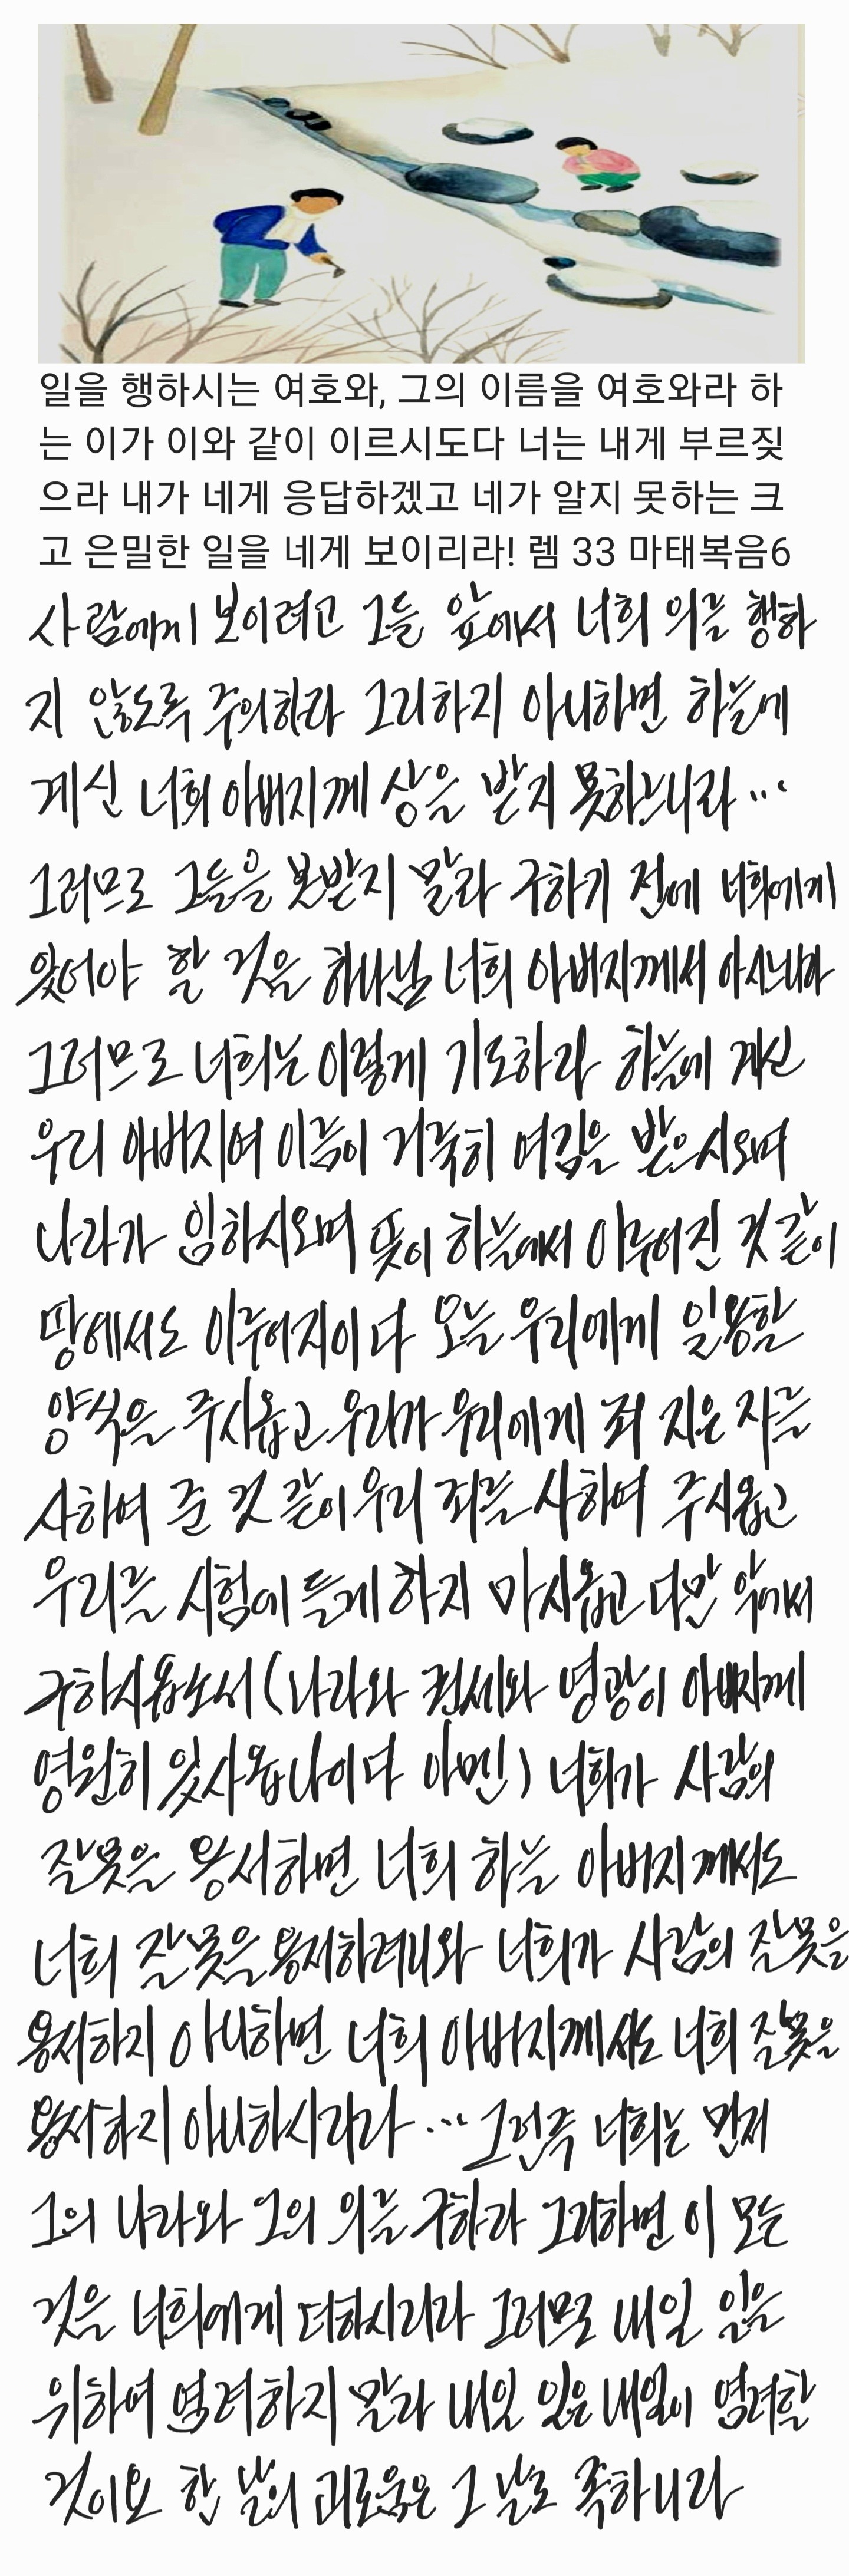 일을 행하시는 여호와, 그의 이름을 여호와라 하
는 이가 이와 같이 이르시도다 너는 내게 부르짖
으라 내가 네게 응답하겠고 네가 알지 못하는 크
고 은밀한 일을 네게 보이리라! 렘 33 마태복음6
사람에게 보이려고 그들 앞에서 너희 의를 행하
지 않도록 주의하라 그리하지 아니하면 하늘에
계신 너희 아버지께 상을 받지 못하느니라...
그러므로 그들을 본받지 말라 구하기 전에 너희에게
있어야 할 것을 하나님 너희 아버지께서 아시느니라
그러므로 너희는 이렇게 기도하라 하늘에 계신
우리 아버지여 이름이 거룩히 여김을 받으시오며
나라가 임하시오며 뜻이 하늘에서 이루어진 것 같이
땅에서도 이루어지이다 오늘 우리에게 일용할
양식을 주시옵고 우리가 우리에게 죄 지은 자를
사하여 준 것 같이 우리 죄를 사하여 주시옵고
우리를 시험에 들게 하지 마시옵고 다만 악에서
구하시옵소서 (나라와 권세와 영광이 아버지께
영원히 있사옵나이다 아멘) 너희가 사람의
잘못을 용서하면 너희 하늘 아버지께서도
너희 잘못을 용서하려니와 너희가 사람의 잘못을
용서하지 아니하면 너희 아버지께서도 너희 잘못을
용서하지 아니하시리라... 그런즉 너희는 먼저
그의 나라와 그의 의를 구하라 그리하면 이 모든
것을 너희에게 더하시리라 그러므로 내일 일을
위하여 염려하지 말라 내일 일은 내일이 염려할
것이요 한 날의 괴로움은 그 날로 족하니라